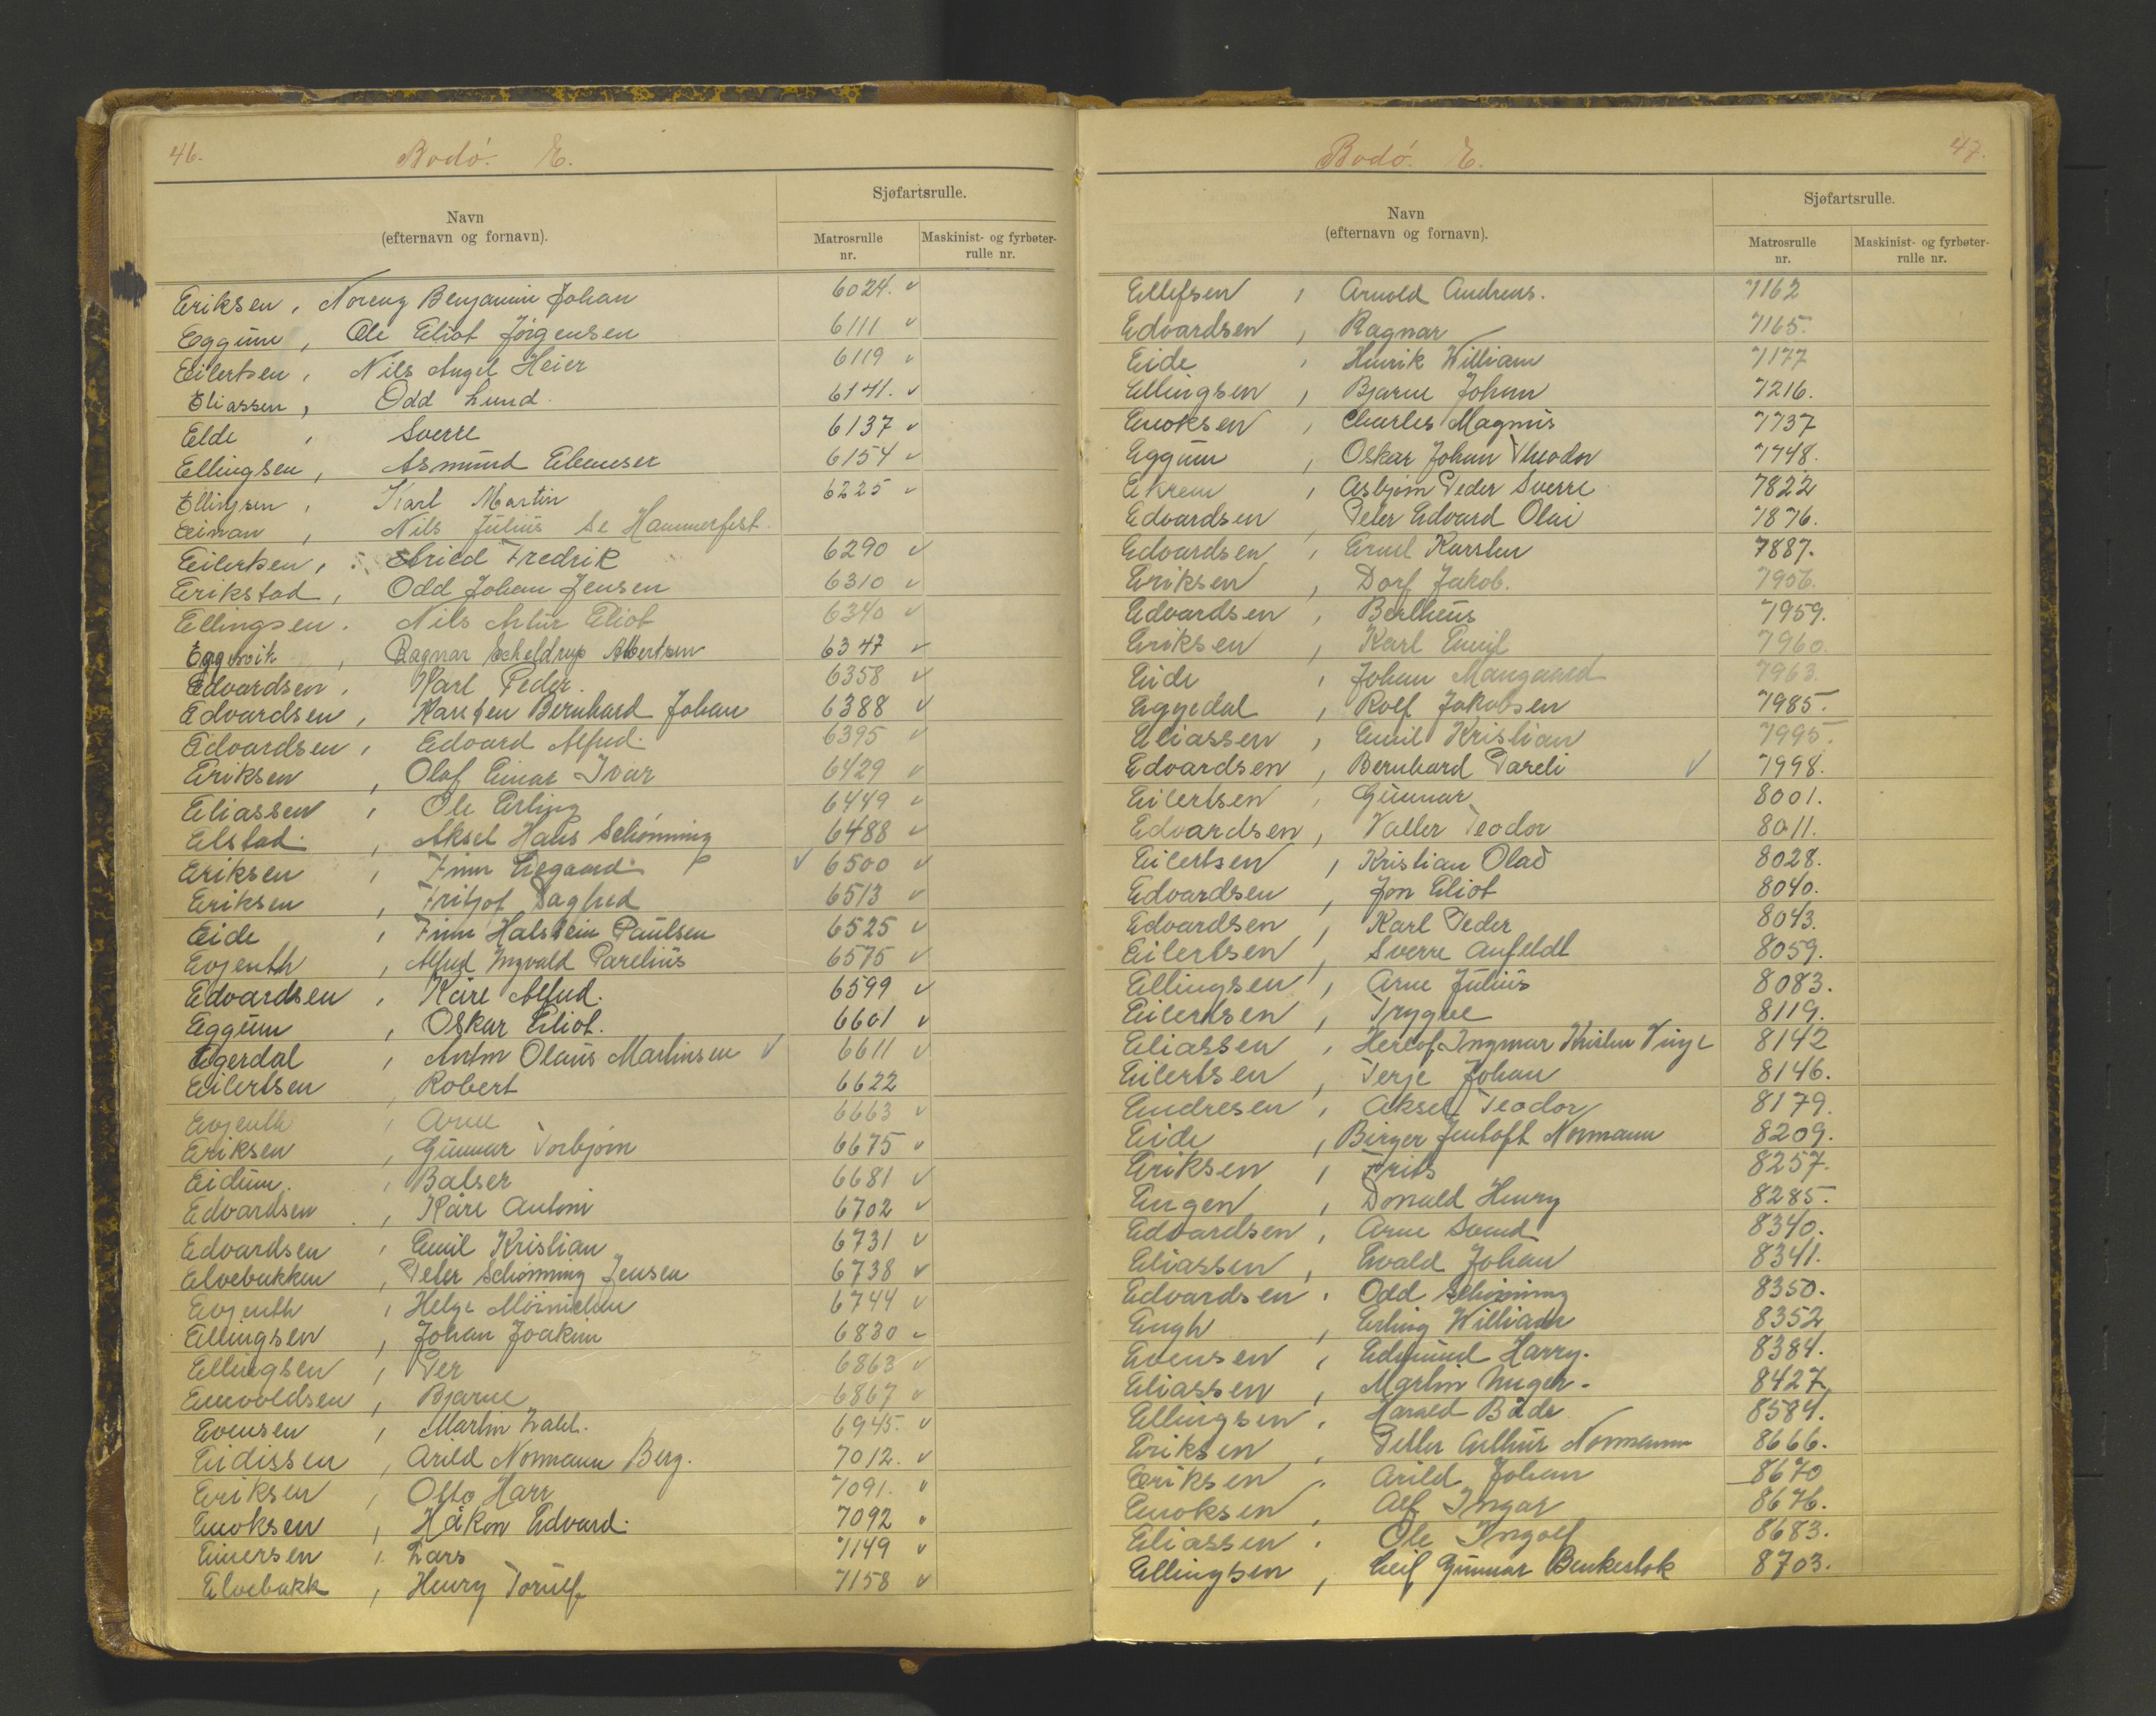 46.
Bodø. E.
Sjøfartsrulle.
Navn
(efternavn og fornavn).
Matrosrulle
nr.
Maskinist- og fyrbøter-
rulle nr.
Eriksen, Noreng Benjamin Johan 6024. v
Eggum, Ole Eliot Jørgensen 6111 v
Eilertsen, Nils Angel Heier 6119 v
Eliassen, Odd Lund. 6141. v
Elde, Sverre 6137 v
Ellingsen, Asmund Ebeneser 6154 v
Ellingsen, Karl Martin 6225 v
Einan, Nils Julius se Hammerfest
Eilertsen, Arild Fredrik 6290 v
Erikstad, Odd Johan Jensen 6310 v
Ellingsen. Nils Artur Eliot 6340 v
Eggesvik, Ragnar Scheldrup Albertsen 6347 v
Edvardsen, Karl Peder. 6358 v
Edvardsen, Karsten Bernhard Johan 6388 v
Edvardsen, Edvard Alfred. 6395 v
Eriksen, Olaf Einar Ivar 6429 v
Eliassen, Ole Erling 6449 v
Elstad, Aksel Hans Schønning 6488 v
Eriksen, Finn Eegaard v 6500 v
Eriksen, Fritjof Dagfred 6513 v
Eide, Finn Halstein Paulsen 6525 v
Evjenth, Alfred Ingvald Parelius 6575 v
Edvardsen, Kåre Alfred. 6599 v
Eggum, Oskar Eliot. 6601 v
Egerdal, Anton Olaus Martinsen v 6611 v
Eilertsen, Robert 6622
Evjenth, Arne 6663 v
Eriksen, Gunnar Torbjørn 6675 v
Eidum. , Balser 6681 v
Edvardsen, Kåre Antoni 6702 v
Edvardsen, Emil Kristian 6731 v
Elvebakken, Peter Schønning Jensen 6738 v
Evjenth, Helge Mørnichen 6744 v
Ellingsen, Johan Joakim 6830 v
Ellingsen, Per 6863 v
Enevoldsen, Bjarne 6867 v
Evensen, Martin Zahl. 6945. v
Eidissen, Arild Normann Berg. 7012. v
Eriksen, Otto Harr 7091. v
Enoksen, Håkon Edvard. 7092 v
Einersen, Lars 7149 v
Elvebakk, Henry Torulf 7158 v
47.
Bodø. E.
Sjøfartsrulle.
Navn
(efternavn og fornavn).
Matrosrulle
nr.
Maskinist- og fyrbøter-
rulle nr.
Ellefsen, Arnold Andreas. 7162
Edvardsen, Ragnar 7165.
Eide, Henrik William 7177
Ellingsen, Bjarne Johan 7216.
Enoksen, Charles Magnus 7737
Eggum, Oskar Johan Theodor 7748.
Ekrem, Asbjørn Peder Sverre 7822
Edvardsen, Peter Edvard Olai 7876.
Edvardsen, Ernst Karsten 7887.
Eriksen, Dorf Jakob. 7906.
Edvardsen, Bertheus 7959.
Eriksen, Karl Emil 7960.
Eide, Johan Mangaard 7963.
Eggedal, Rolf Jakobsen 7985.
Eliassen, Emil Kristian 7995.
Edvardsen, Bernhard Pareli v 7998.
Eilertsen, Gunnar 8001.
Edvardsen, Valter Teodor 8011.
Eilertsen, Kristian Olad 8028.
Edvardsen, Jon Eliot 8040.
Edvardsen, Karl Peder 8043.
Eilertsen, Sverre Anfeldt 8059.
Ellingsen, Arne Julius 8083.
Eilertsen, Trygve 8119.
Eliassen, Herlof Ingmar Kristen Vinje 8142
Eilertsen, Terje Johan 8146.
Endresen, Aksel Teodor 8179.
Eide, Birger Jentoft Normann 8209.
Eriksen, Frits 8257.
Engen, Donald Henry 8285.
Edvardsen, Arne Svend 8340.
Eliassen, Evald Johan 8341.
Edvardsen, Odd Schønning 8350.
Engh, Erling William 8352
Evensen, Edmund Harry. 8384.
Eliassen, Martin 8427
Ellingsen, Harald Både 8584.
Eriksen, Petter Arthur Normann 8666.
Eriksen, Arild Johan 8670
Enoksen, Alf Ingar 8676.
Eliassen, Ole Ingolf 8683.
Ellingsen, Leif Gunnar Benkestok 8703.